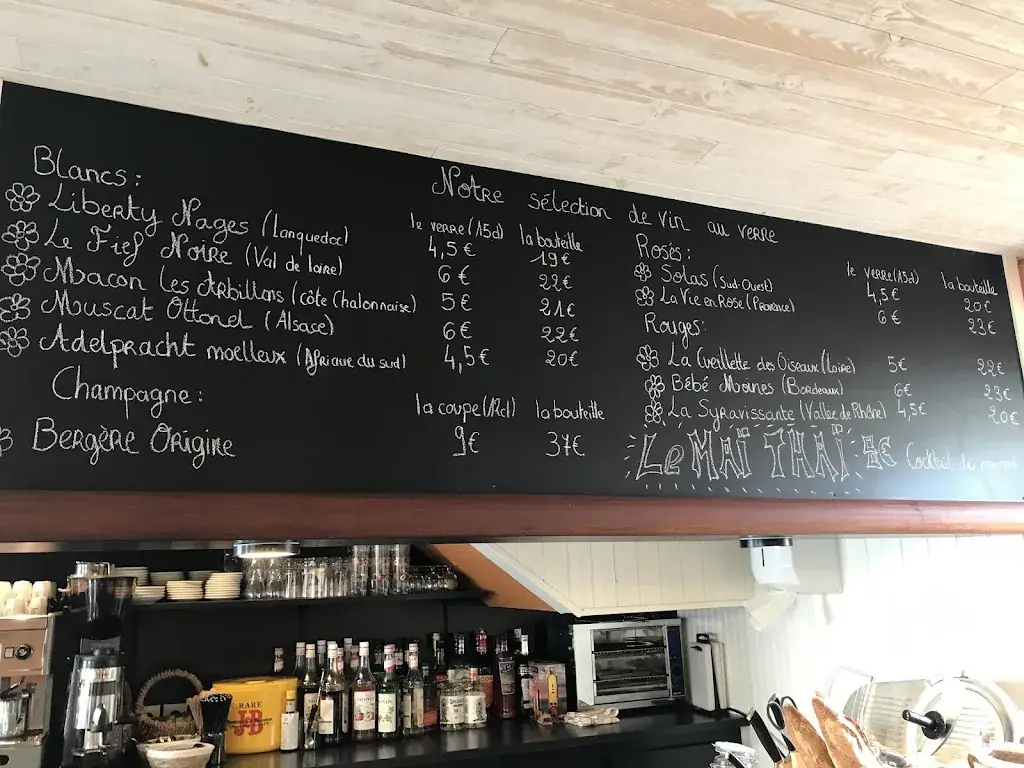 Notre sélection de vin au verre
Blancs:
le verre (15cl) la bouteille
Liberty Nages (Languedoc) 4,5€ 19€
Le Fief Noire (Val de loire) 6€ 22€
Macon Les Arbillons (côte Chalonnaise) 5€ 21€
Muscat Ottonel (Alsace) 6€ 22€
Adelpracht moelleux (Afrique du sud) 4,5€ 20€
Champagne:
la coupe (12cl) la bouteille
Bergère Origine 9€ 37€
Rosés:
le verre (15cl) la bouteille
Solas (Sud-Ouest) 4,5€ 20€
La Vie en Rose (Provence) 6€ 23€
Rouges:
La Cueillette des Oiseaux (Loire) 5€ 22€
Bébé Moines (Bordeaux) 6€ 23€
La Syravissante (Vallée de Rhône) 4,5€ 20€
Le MAÏ THAÏ 8€ Cocktail du moment
RARE
J&B